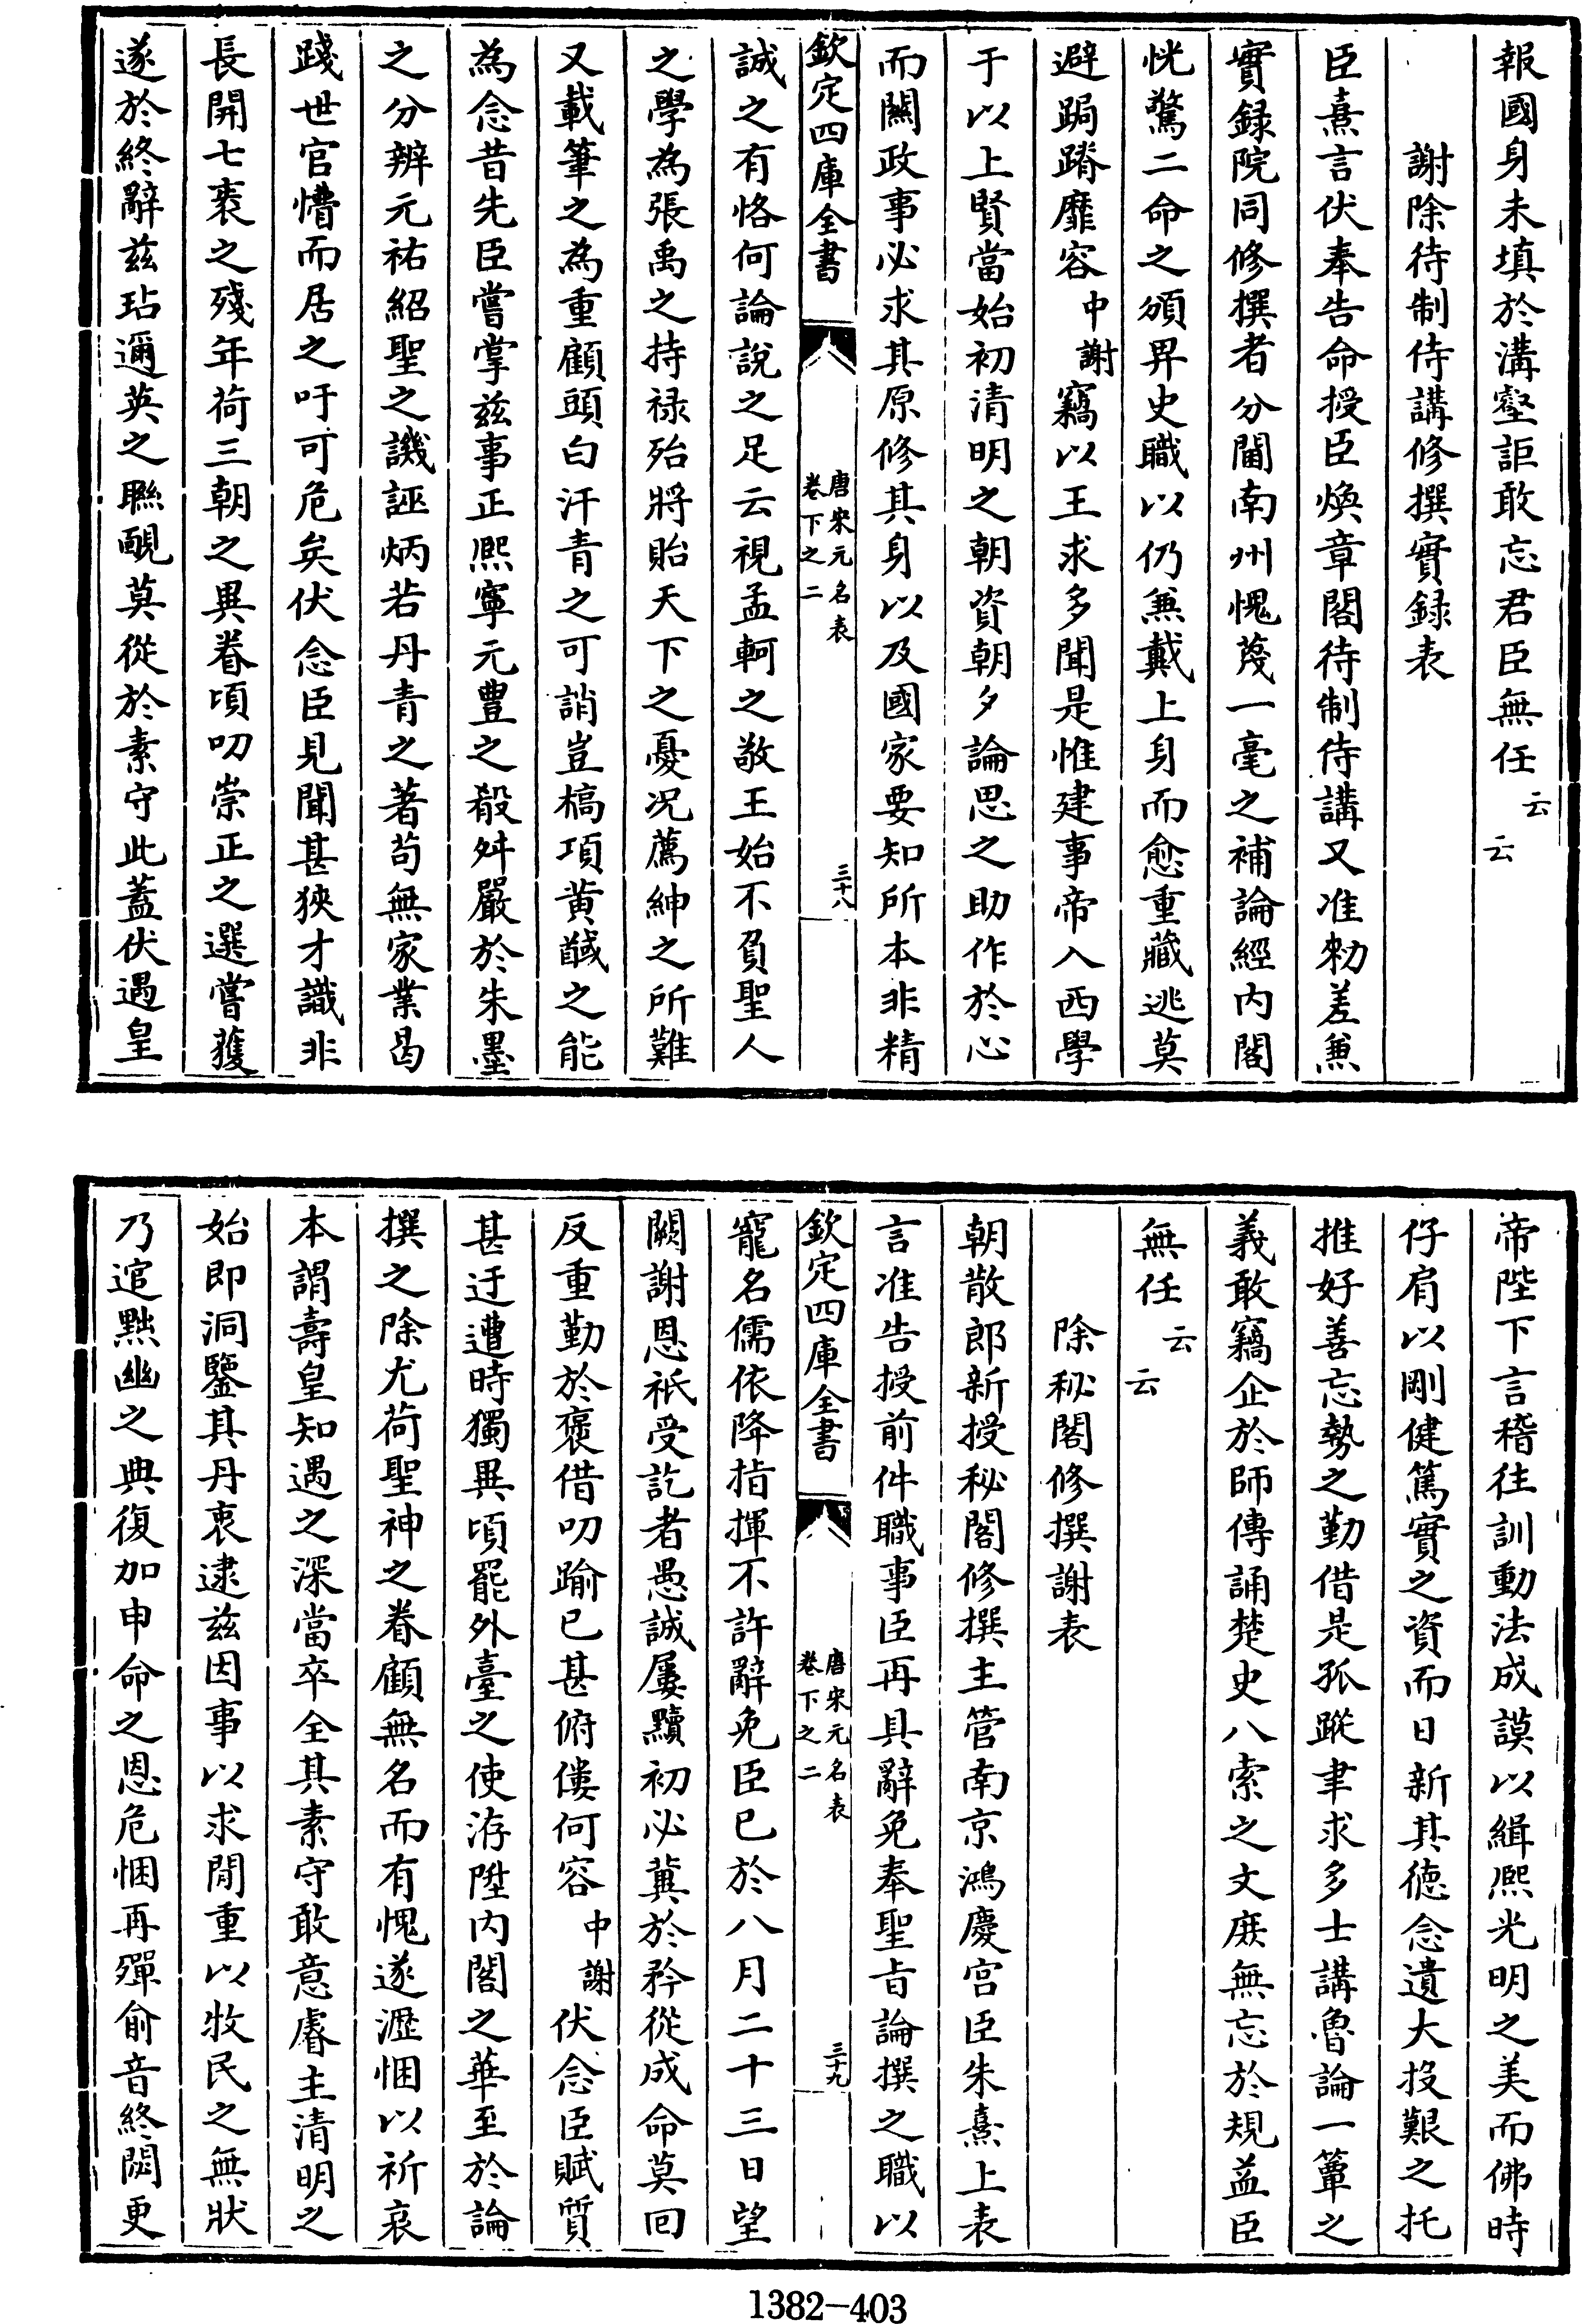 報國身未填於溝壑詎敢忘君臣無任云云
謝除待制侍講修撰實録表
臣熹言伏奉告命授臣煥章閣待制侍講又准勑差兼
實録院同修撰者分閫南州愧蔑一毫之補論經内閣
恍驚二命之頒畀史職以仍兼戴上身而愈重藏逃莫
避跼蹐靡容中謝竊以王求多聞是惟建事帝入西學
于以上賢當始初清明之朝資朝夕論思之助作於心
而闗政事必求其原修其身以及國家要知所本非精
欽定四庫全書
唐宋元名表
卷下之二
三十八
誠之有恪何論說之足云視孟軻之敬王始不負聖人
之學為張禹之持禄殆將貽天下之憂况薦紳之所難
又載筆之為重顧頭白汗青之可誚豈槁項黄馘之能
為念昔先臣嘗掌兹事正熙寧元豊之殽舛嚴於朱墨
之分辨元祐紹聖之譏誣炳若丹青之著苟無家業曷
踐世官懵而居之吁可危矣伏念臣見聞甚狹才識非
長開七袠之殘年荷三朝之異眷頃叨崇正之選嘗獲
遂於終辭兹玷邇英之聯覥莫從於素守此蓋伏遇皇
帝陛下言稽往訓動法成謨以緝熙光明之美而佛時
仔肩以剛健篤實之資而日新其徳念遺大投艱之托
推好善忘勢之勤借是孤蹤聿求多士講魯論一篳之
義敢竊企於師傳誦楚史八索之文庶無忘於規益臣
無任云云
除秘閣修撰謝表
朝散郎新授秘閣修撰主管南京鴻慶宫臣朱熹上表
言准告授前件職事臣再具辭免奉聖旨論撰之職以
欽定四庫全書
唐宋元名表
卷下之二
三十九
寵名儒依降指揮不許辭免臣已於八月二十三日望
闕謝恩祗受訖者愚誠屢黷初必冀於矜從成命莫回
反重勤於褒借叨踰已甚俯僂何容中謝伏念臣賦質
甚迂遭時獨異頃罷外臺之使洊陞内閣之華至於論
撰之除尤荷聖神之眷顧無名而有愧遂瀝悃以祈哀
本謂壽皇知遇之深當卒全其素守敢意睿主清明之
始即洞鑒其丹衷逮兹因事以求閒重以牧民之無狀
乃逭黜幽之典復加申命之恩危悃再殫俞音終閟更
1382-403